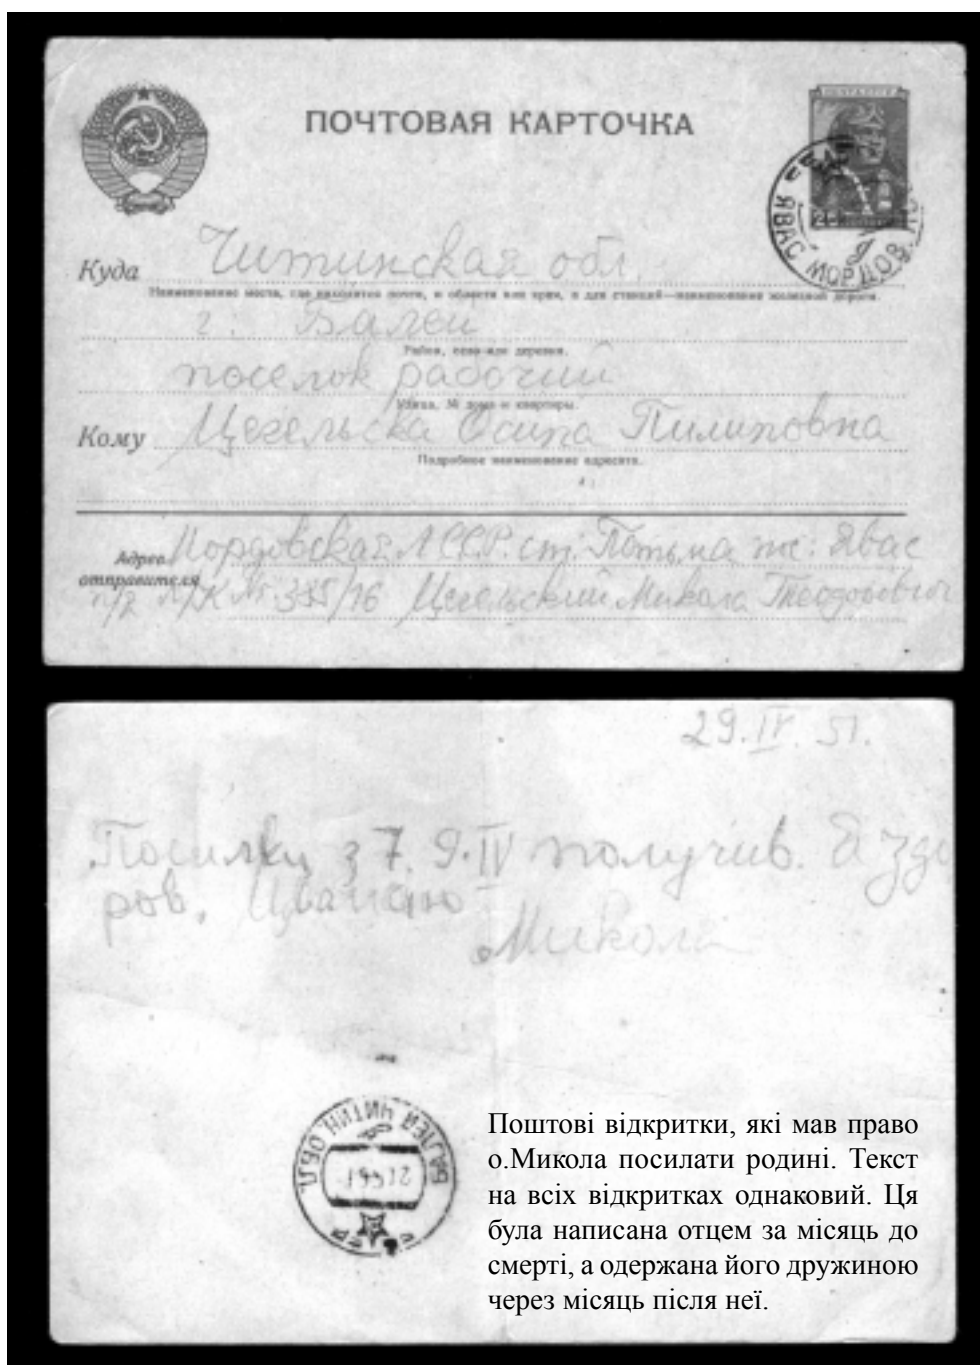 ПОЧТОВАЯ КАРТОЧКА
ЯВАС МОРДОВ.
Куда Читинская обл.
Наименование места, где находится почта, и области или края, а для станций—наименование железной дороги.
г. Балей
Район, село или деревня.
поселок рабочий
Улица, № дома и квартиры.
Кому Цегельска Осипа Пилиповна
Подробное наименование адресата.
Адрес Мордовская АССР. ст. Потьма п/о: Явас
отправителя п/я № 385/16 Цегельский Микола Теодорович
29.IV.51.
Посилку з 7. 9.IV получив. Я здо
ров. Цілую
Микола
БАЛЕЙ ЧИТИН. ОБЛ.
Поштові відкритки, які мав право
о.Микола посилати родині. Текст
на всіх відкритках однаковий. Ця
була написана отцем за місяць до
смерті, а одержана його дружиною
через місяць після неї.